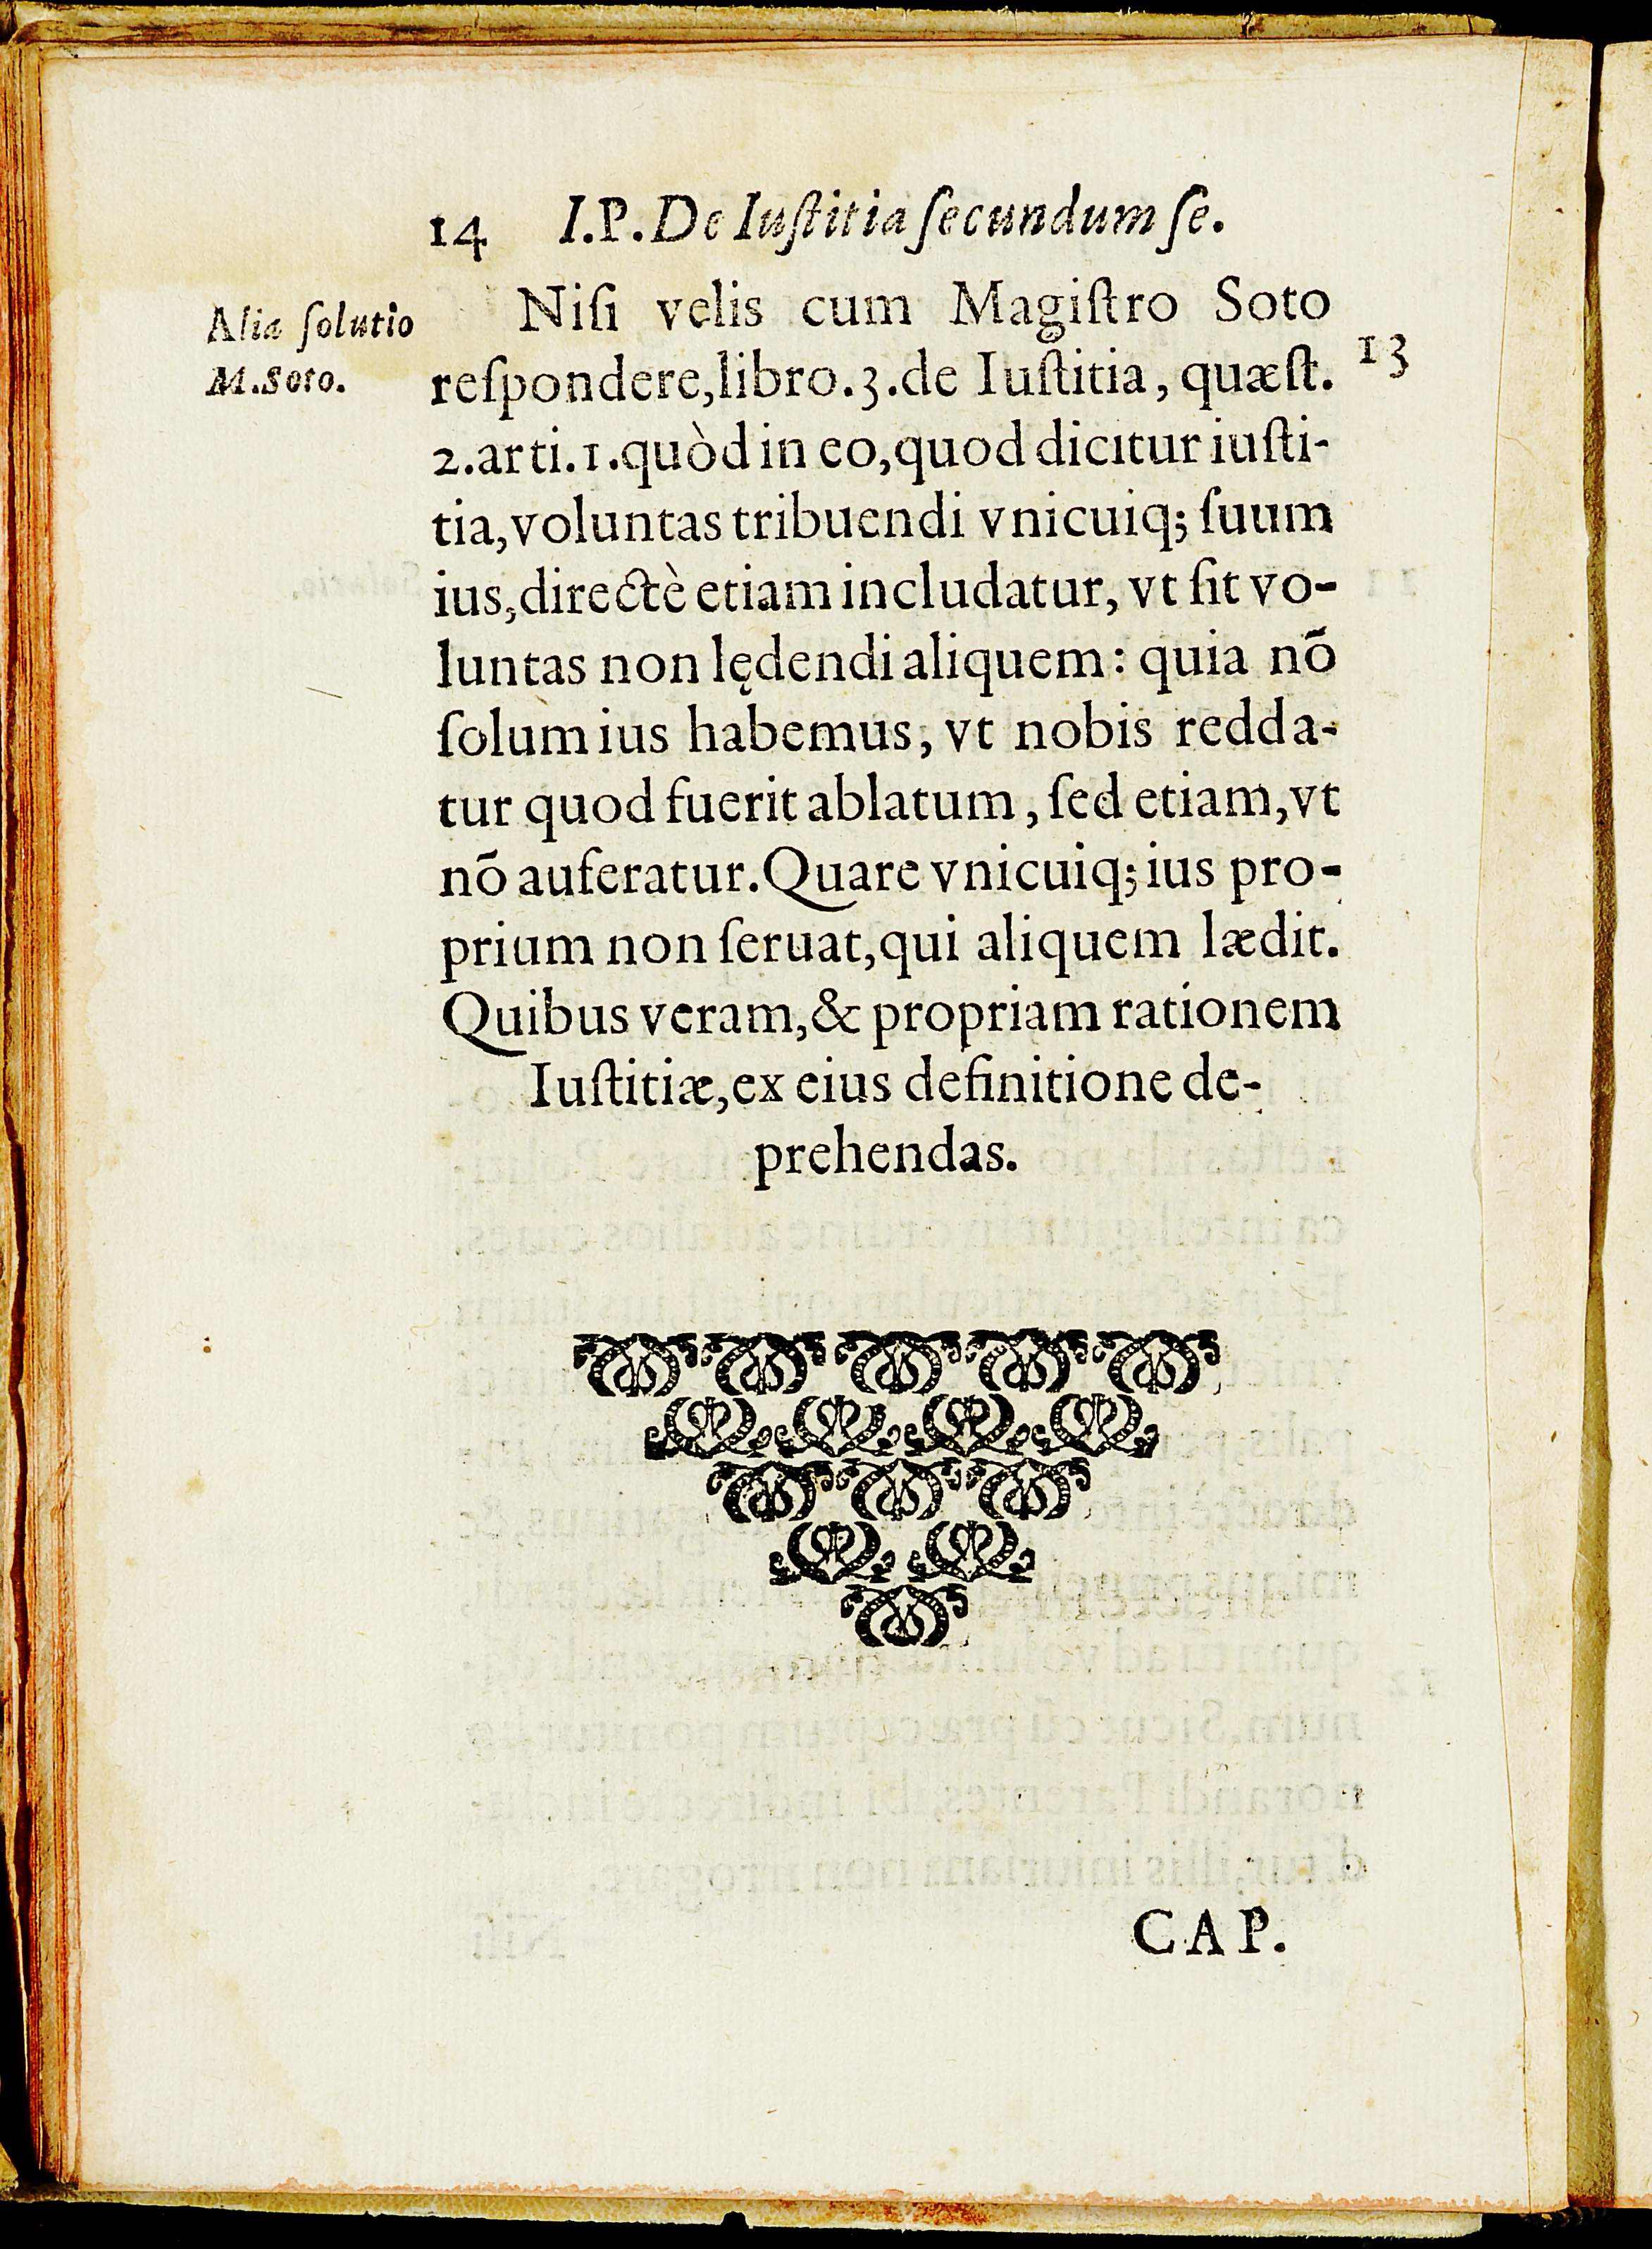 14 I.P. De Iuſtitia ſecundum ſe.
Alia ſolutio
M.Soto.
Niſi velis cum Magiſtro Soto
13
reſpondere,libro.3.de Iuſtitia, quæſt.
2.arti.1.quòd in eo,quod dicitur iuſti-
tia,voluntas tribuendi vnicuiq; ſuum
ius,directè etiam includatur, vt ſit vo-
luntas non lędendi aliquem: quia nõ
ſolum ius habemus, vt nobis redda-
tur quod fuerit ablatum, ſed etiam,vt
nõ auferatur.Quare vnicuiq; ius pro-
prium non ſeruat,qui aliquem lædit.
Quibus veram,& propriam rationem
Iuſtitiæ,ex eius definitione de-
prehendas.
CAP.